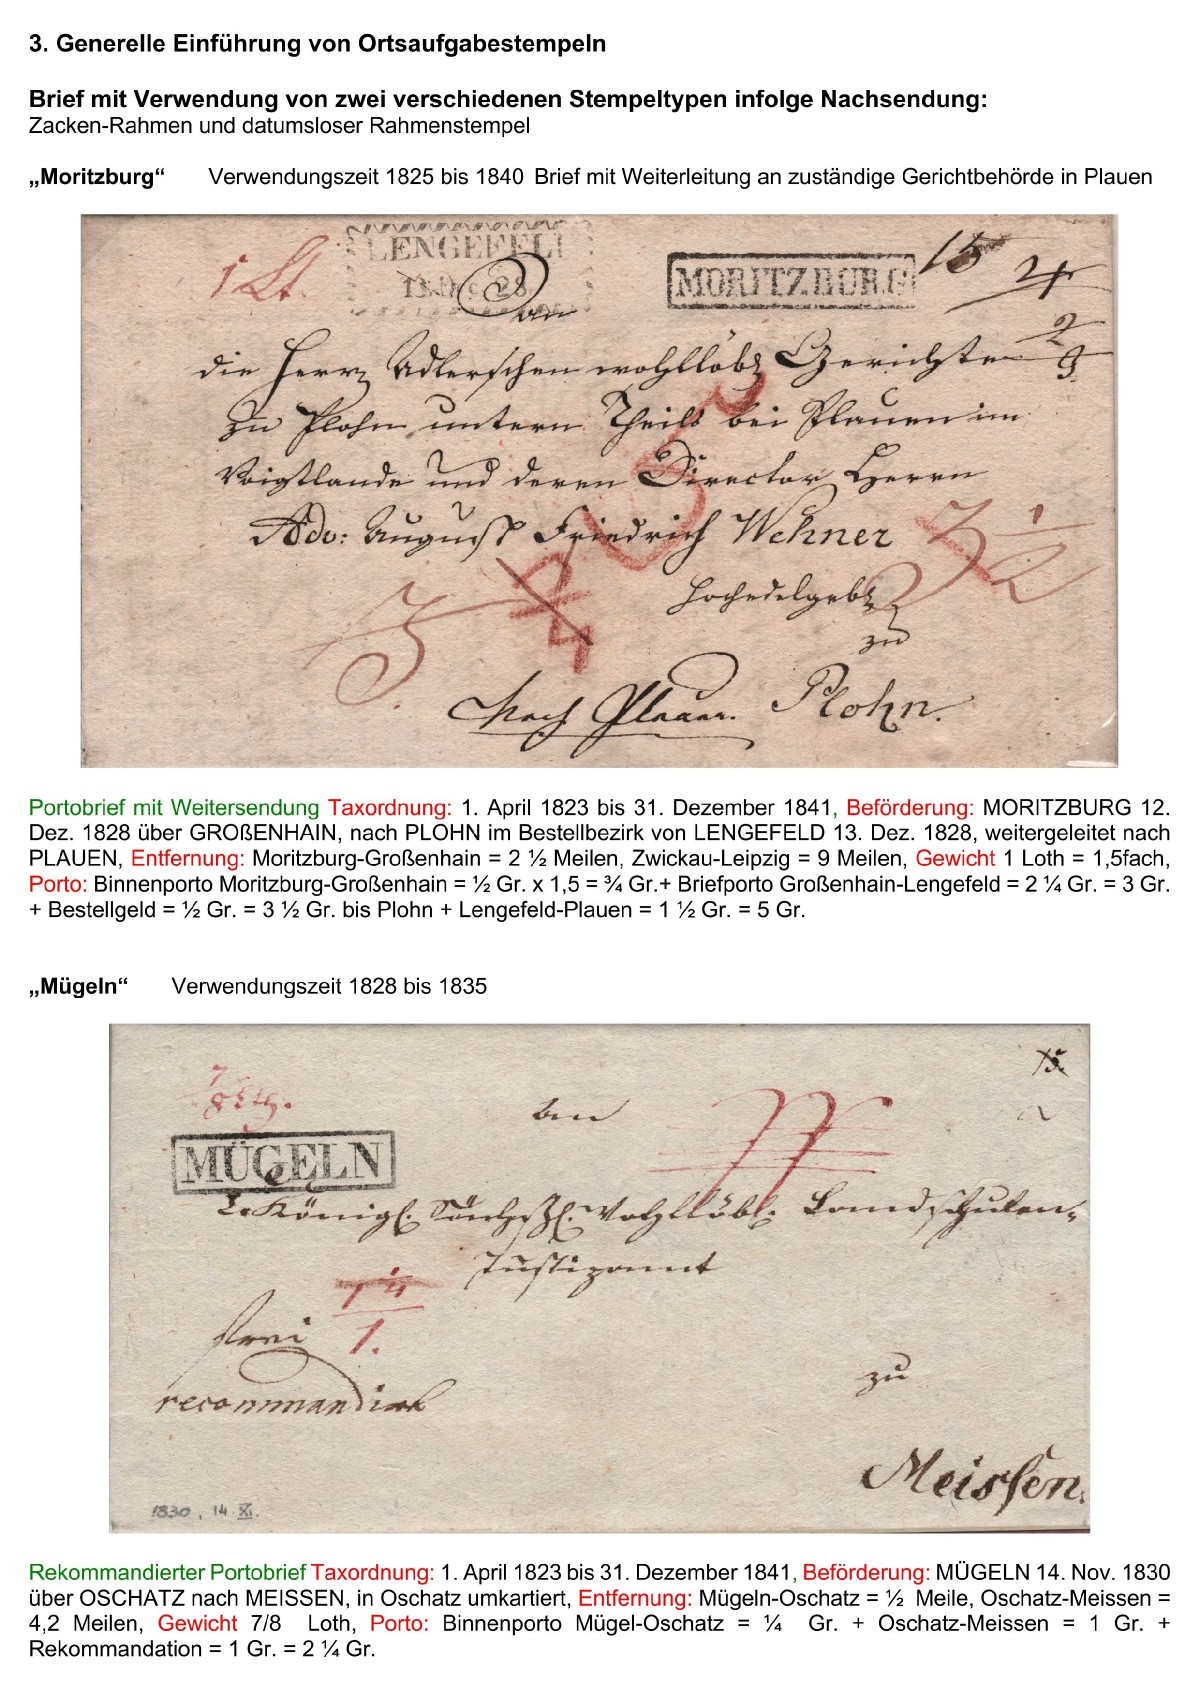 3. Generelle Einführung von Ortsaufgabestempeln
Brief mit Verwendung von zwei verschiedenen Stempeltypen infolge Nachsendung:
Zacken-Rahmen und datumsloser Rahmenstempel
„Moritzburg“ Verwendungszeit 1825 bis 1840 Brief mit Weiterleitung an zuständige Gerichtbehörde in Plauen
LENGEFEL
MORITZBURG
15
1 Lt.
13. D 28
4
an
die Herrn Adlerschen wohllöbl Gerichte
zu Plohn untern Theils bei Plauen im
Voigtlande und deren Director Herrn
Adv: August Friedrich Wehner
3 1/2
hochedelgeb
3
zu
Nach Plauen. Plohn.
Portobrief mit Weitersendung Taxordnung: 1. April 1823 bis 31. Dezember 1841, Beförderung: MORITZBURG 12.
Dez. 1828 über GROßENHAIN, nach PLOHN im Bestellbezirk von LENGEFELD 13. Dez. 1828, weitergeleitet nach
PLAUEN, Entfernung: Moritzburg-Großenhain = 2 ½ Meilen, Zwickau-Leipzig = 9 Meilen, Gewicht 1 Loth = 1,5fach,
Porto: Binnenporto Moritzburg-Großenhain = ½ Gr. x 1,5 = ¾ Gr.+ Briefporto Großenhain-Lengefeld = 2 ¼ Gr. = 3 Gr.
+ Bestellgeld = ½ Gr. = 3 ½ Gr. bis Plohn + Lengefeld-Plauen = 1 ½ Gr. = 5 Gr.
„Mügeln“ Verwendungszeit 1828 bis 1835
15.
7/8 Lth.
an
MÜGELN
Königl. Sächßl. Wohllöbl. Landschulen-
Justizamt
frei
1.
zu
recommandirt
Meissen.
1830, 14 XI.
Rekommandierter Portobrief Taxordnung: 1. April 1823 bis 31. Dezember 1841, Beförderung: MÜGELN 14. Nov. 1830
über OSCHATZ nach MEISSEN, in Oschatz umkartiert, Entfernung: Mügeln-Oschatz = ½ Meile, Oschatz-Meissen =
4,2 Meilen, Gewicht 7/8 Loth, Porto: Binnenporto Mügel-Oschatz = ¼ Gr. + Oschatz-Meissen = 1 Gr. +
Rekommandation = 1 Gr. = 2 ¼ Gr.